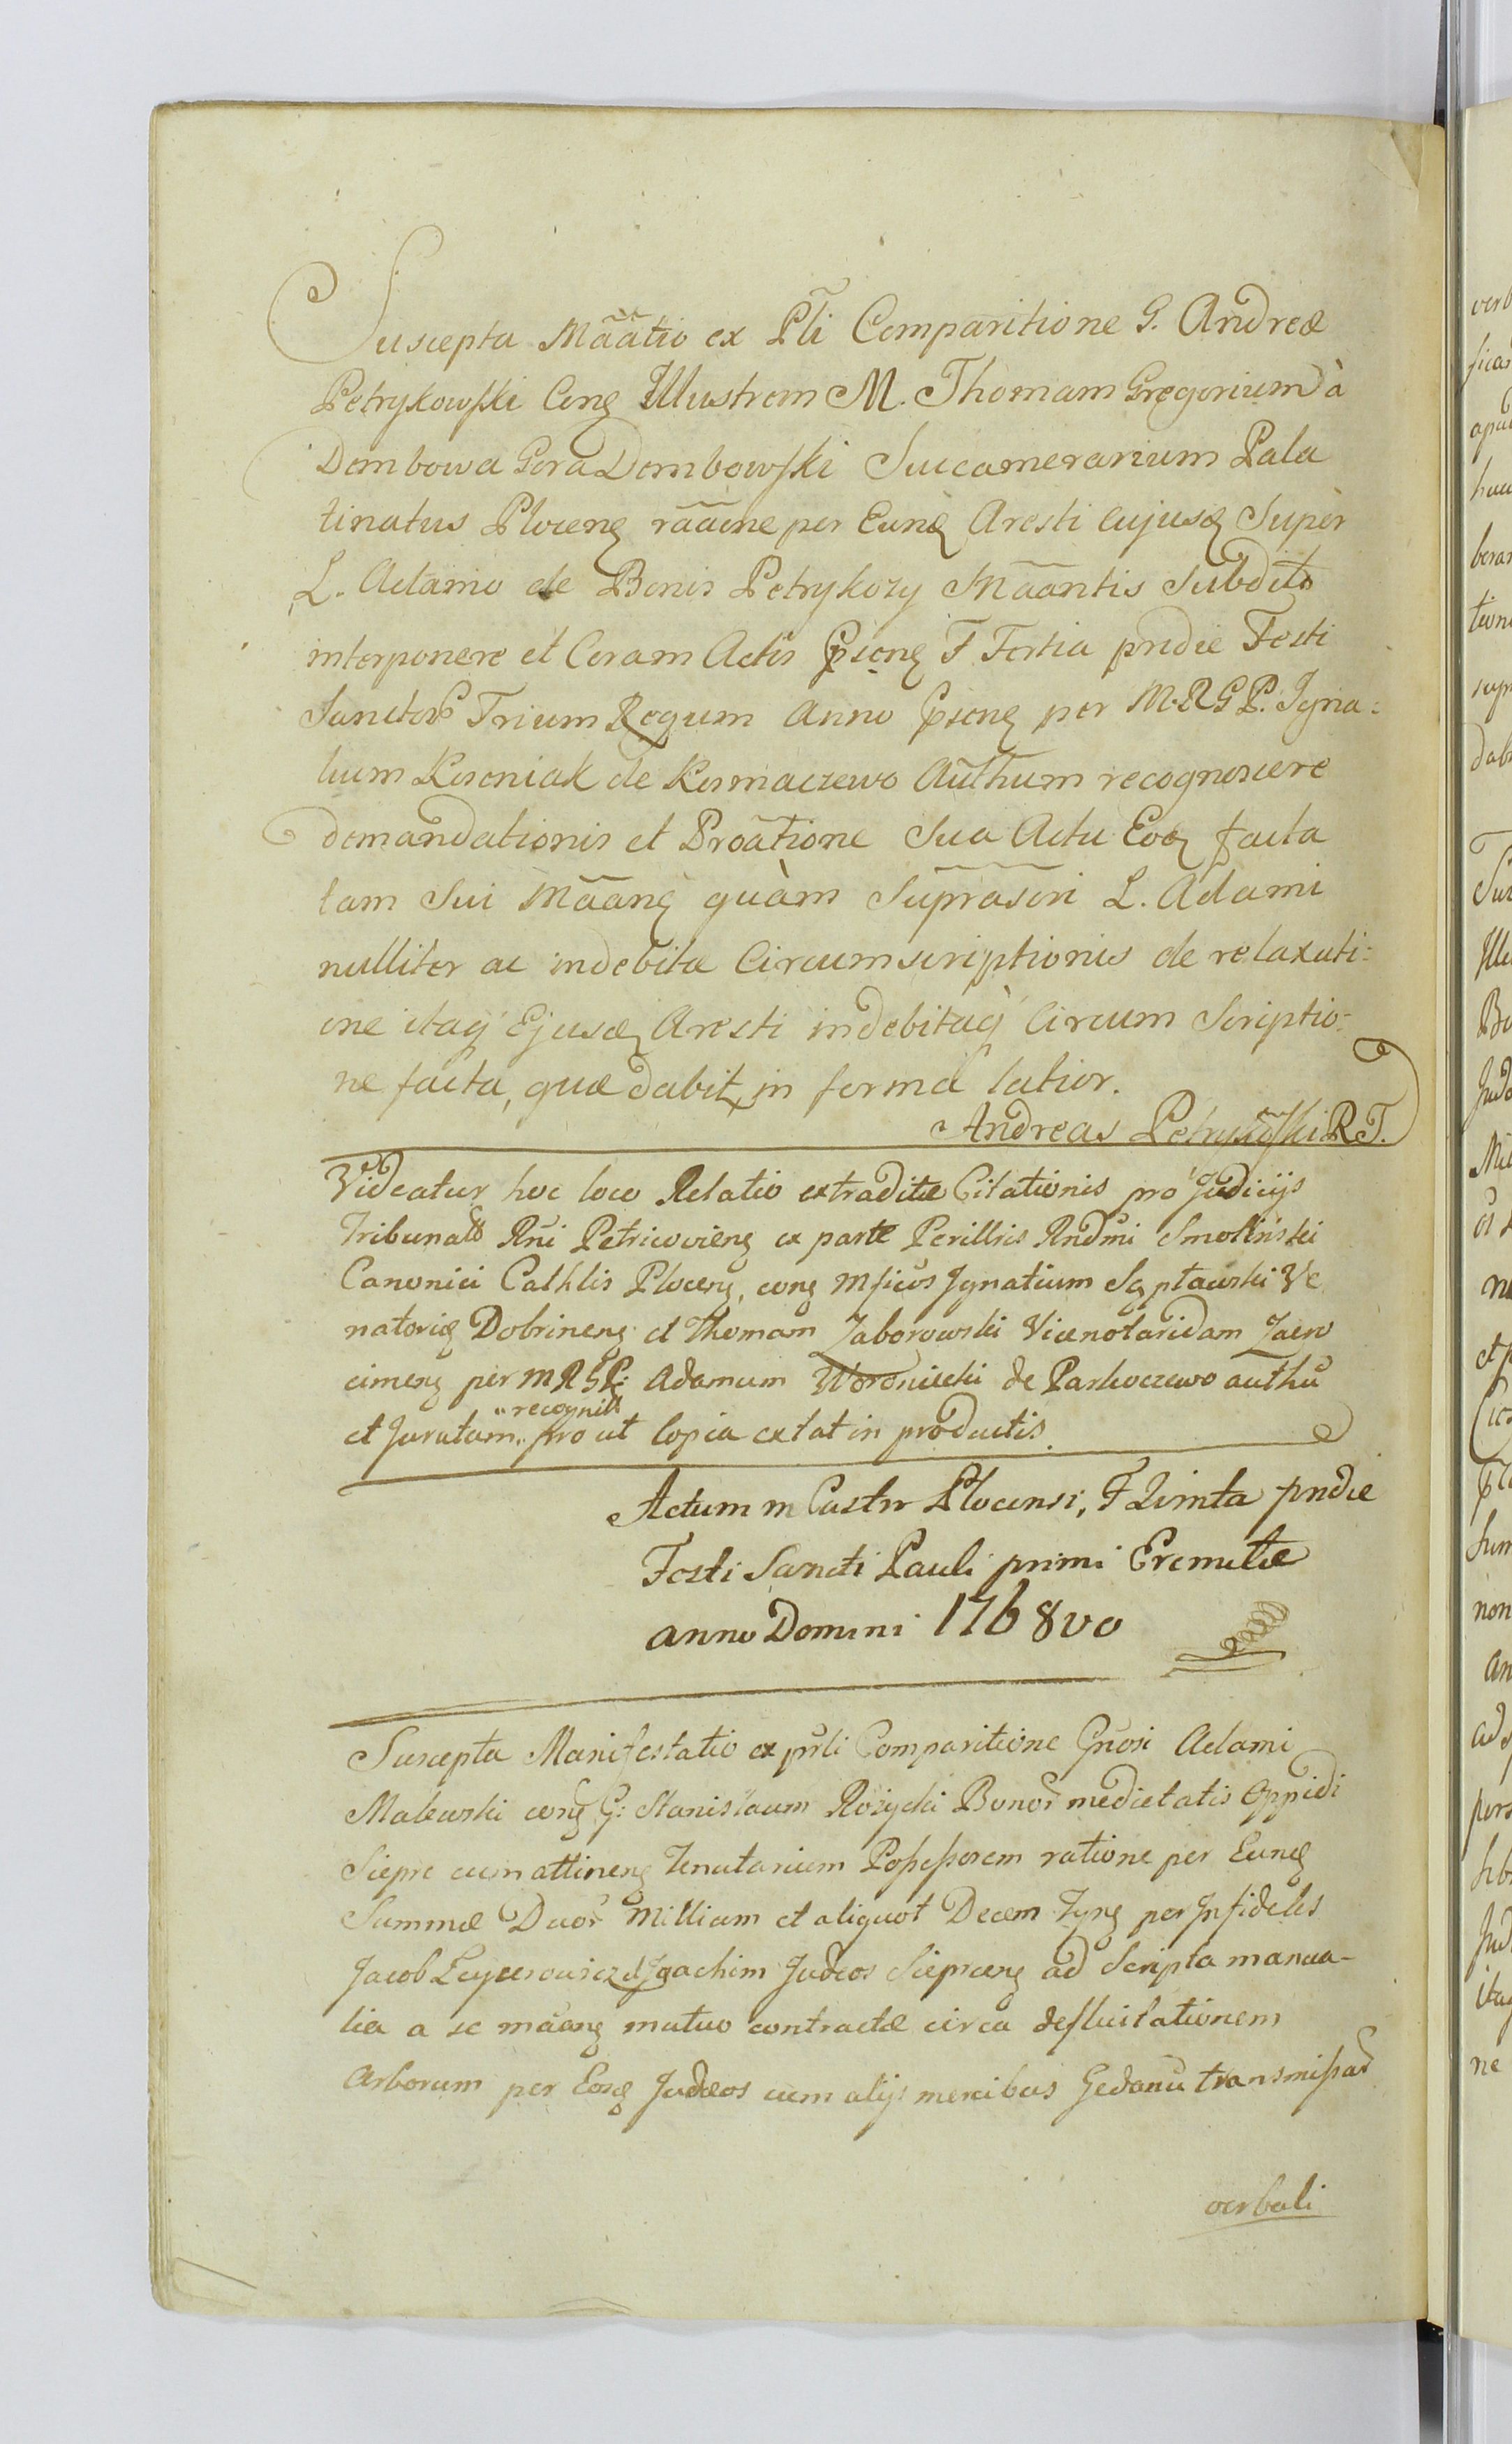 Suscepta Mããtio ex Pl̃i Comparitione G. Andreæ
Petrykowski Cong Illustrem M. Thomam Gregorium à
Dombowa Gora Dombowski Succamerarium Pala
tinatus Ploceng rããone per Eunđ Aresti cujusđ Super
L. Adamo de Bonis Petrykozy Mããntis Subdito
interponere et Coram Actis F Tertia pridie Festi
Sanctor Trium Regum Anno per M.R G P. Igna:
tium Koroniak de Authum recognoscere
demandationis et Proãtione Sua Actu Eođ facta
tam Sui Mããng quàm Suprascri L. Adami
nulliter ac indebitæ Circumscriptionis de relaxati:
one itaq Ejusđ Aresti indebitaq Circum Scriptio:
ne facta, quæ dabit in forma latior.
Andreas Petrykowski R T.
Videatur hoc loco Relatio extraditæ Citationis pro Judicijs
Tribunals Rni Petricovieng ex parte Perillris Rndmi Smolinski
Canonici Cathlis Ploceng, cong Mficos Ignatium Ve
natorię Dobrineng et Thomam Zaborowski Vicenotaridam Zaew
cimeng per M R G P: Adamum Woroniecki de Parkoczewo authũ
et Juratum " recognit pro ut Copia extat in productis.
Actum in Castro Plocensi, F Qvinta pridie
Festi Sancti Pauli primi Eremitæ
anno Domini 1768vo
Suscepta Manifestatio ex pñli Comparitione Gñosi Adami
Malewski cong G: Stanislaum Rozycki Bonor medietatis Oppidi
Siepre cum attineng Tenutarium Possessorem ratione per Eunđ
Summæ Duor Millium et aliquot Decem Tyng per Infideles
Jacob et Joachim Judeos Siepreng ad Scripta manua-
lia a se mãang mutuo contractæ circa defluitationem
Arborum per Eosđ Judæos cum alijs mercibus Gedanũ transmissar
verbali